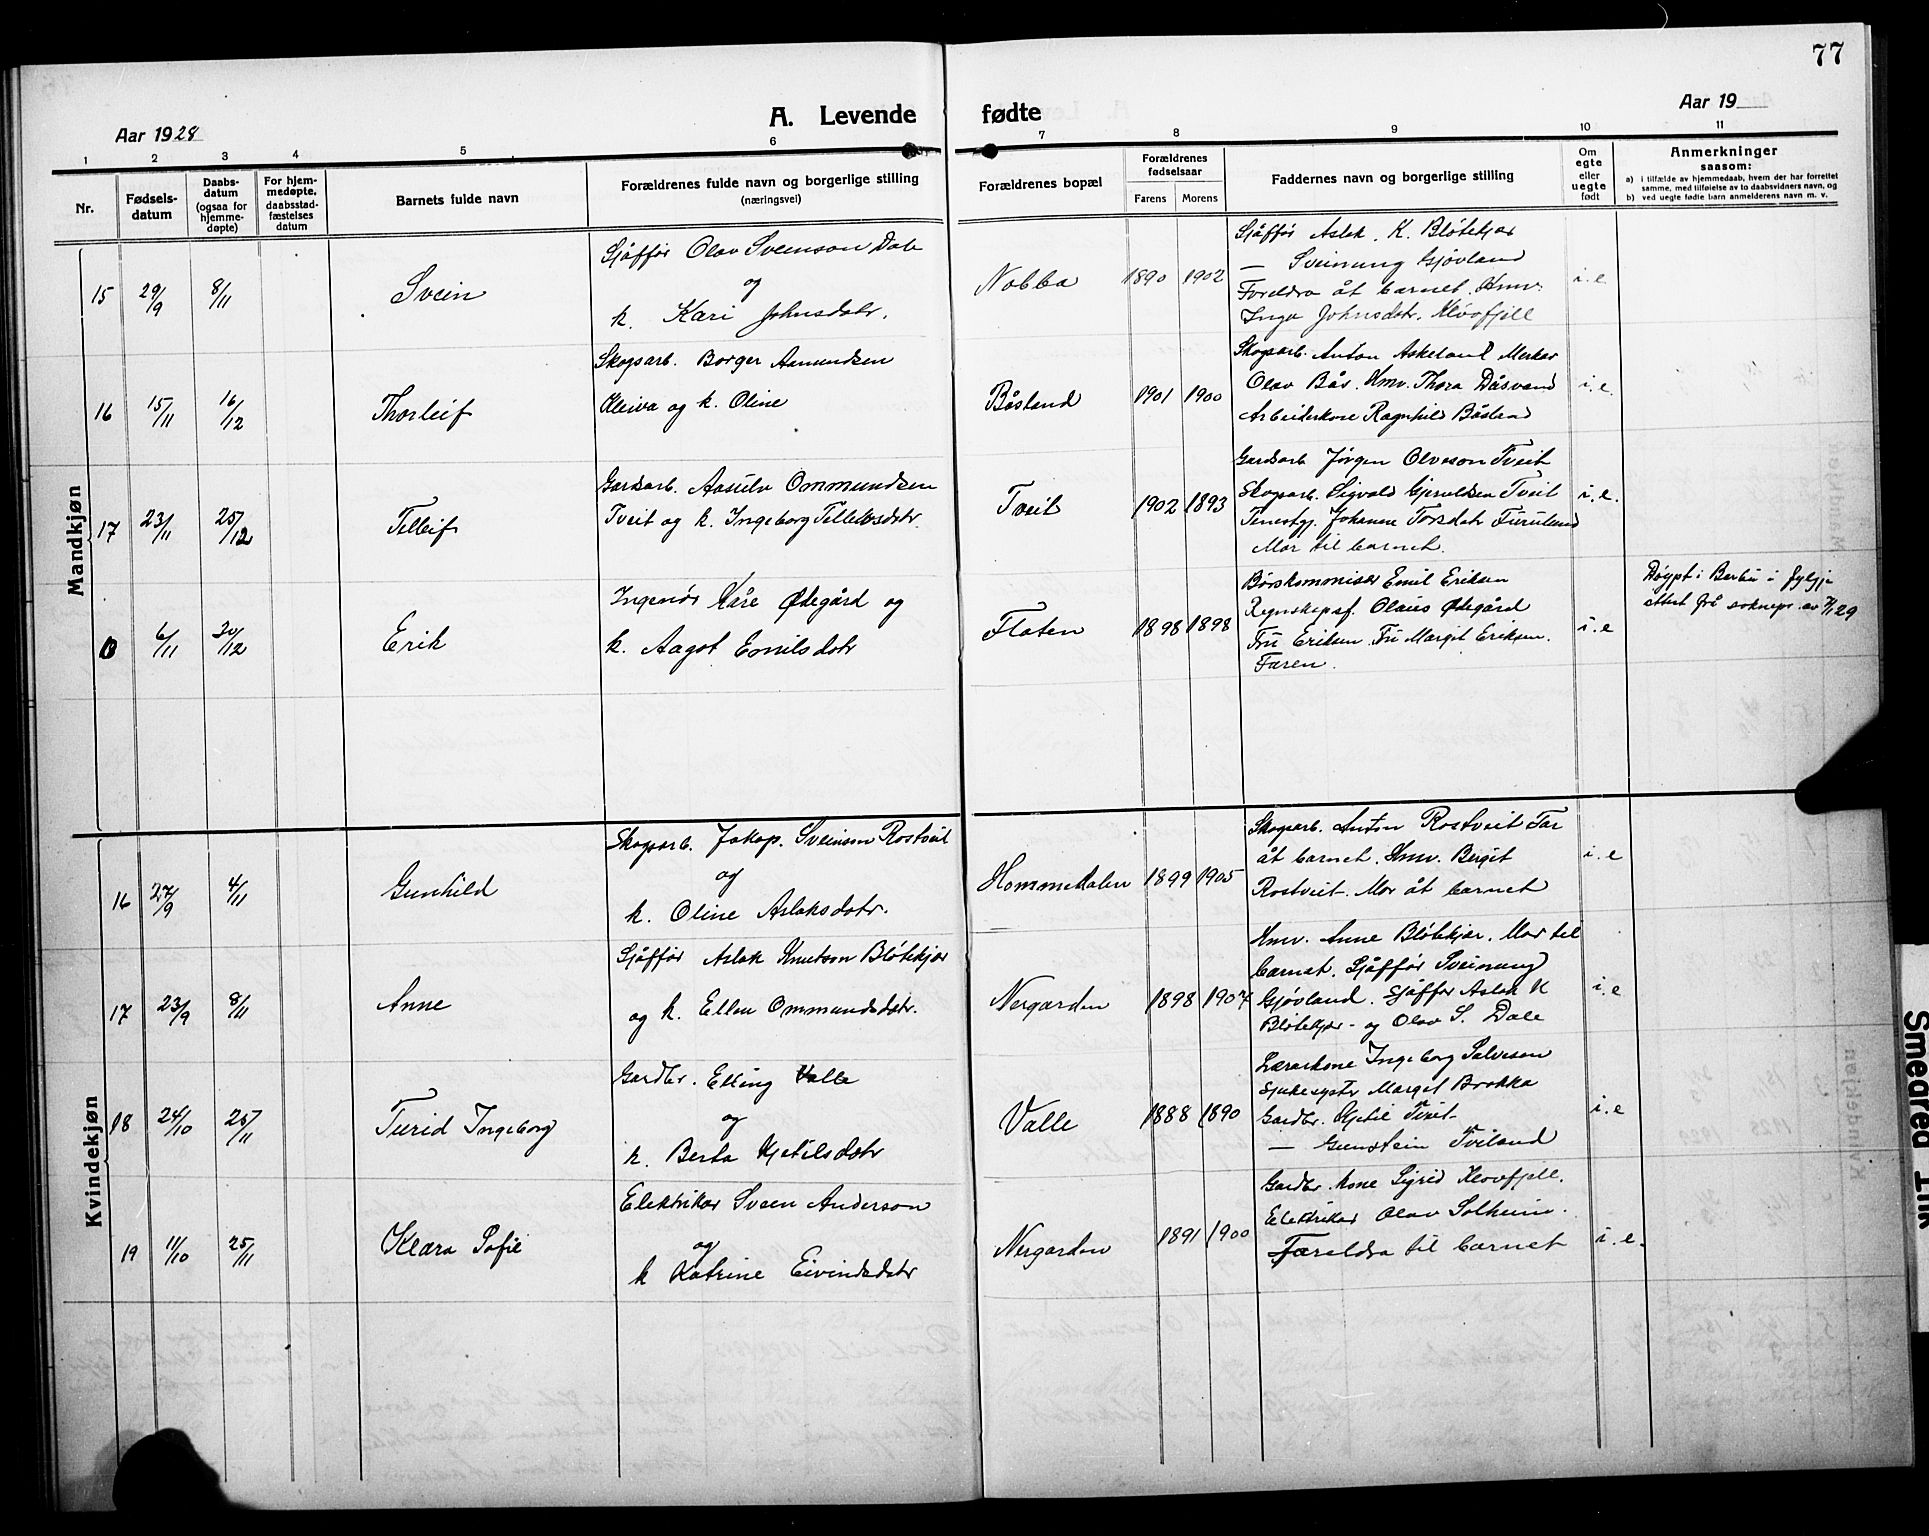 77
A. Levende fødte
Aar 1928
Aar 19
1 2 3 4 5 6 7 8 9 10 11
Nr.
Fødsels-
datum
Daabs-
datum
(ogsaa for
hjemme-
døpte)
For hjem-
medøpte,
daabsstad-
fæstelses
datum
Barnets fulde navn
Forældrenes fulde navn og borgerlige stilling
(næringsvei)
Forældrenes bopæl
Forældrenes
fødselsaar
Farens Morens
Faddernes navn og borgerlige stilling
Om
egte
eller
uegte
født
Anmerkninger
saasom:
a) i tilfælde av hjemmedaab, hvem der har forrettet
samme, med tilføielse av to daabsvidners navn, og
b) ved uegte fødte barn anmelderens navn m. v.
Mandkjøn
15 29/9 8/11 Svein
Sjåffør Olav Sveinson Dale
og
k. Kari Johnsdotr.
Nobba 1890 1902
Sjåffør Aslak. K. Bløtekjær
— Sveinung Gjøvland
Foreldra åt barnet. Hmv.
Inga Johnsdotr. Kløvfjell
i.e
16 15/11 16/12 Thorleif
Skogsarb. Borger Asmundsen
Kleiva og k. Oline
Båsland 1901 1900
Skogsarb. Anton Askeland Merkar
Olav Bås. Hmv. Thora Dåsvand
Arbeiderkone Ragnhild Båsland
i.e.
17 23/11 25/12 Telleif
Gardsarb. Aasulv Ommundsen
Tveit og k. Ingeborg Tellefsdotr.
Tveit 1902 1893
Gardsarb Jørgen Olveson Tveit
Skogsarb. Sigvald Gjeruldsen Tveit
Tenestgj. Johanne Torsdotr Furulund
Mor til barnet.
i.e.
6/11 30/12 Erik
Ingenør Kåre Ødegård og
k. Aagot Emilsdotr
Flaten 1898 1898
Børskommisær Emil Eriksen
Regnskapsf. Olaus Ødegård
Fru Eriksen. Fru Margit Eriksen.
Faren.
i.e
Døypt i Barbu i fylgje
attest frå soknepr. av 29
Kvindekjøn
16 27/9 4/11 Gunhild
Skogsarb. Jakop. Sveinson Rostveit
og
k. Oline Aslaksdotr.
Hommedalen 1899 1905
Skogsarb. Anton Rostveit Far
åt barnet. Hmv. Bergit
Rostveit. Mor åt barnet
i.e
17 23/9 8/11 Anne
Sjåffør Aslak Knutson Bløtekjær
og k. Ellen Ommundsdotr.
Nergarden 1898 1907
Hmv. Anne Bløtekjær. Mor til
barnet. Sjåffør Sveinung
Gjøvland. Sjåffør Aslak K
Bløtekjær - og Olav S. Dale
i.e
18 24/10 25/11 Turid Ingeborg
Gardbr. Elling Valle
og
k. Berta Kjetilsdotr
Valle 1888 1890
Lærarkone Ingeborg Salveson
Sjukesystr Margit Brokka
Gardbr. Kjetil Tveit
— Gunstein Tveiland
i.e
19 11/10 25/11 Klara Sofie
Elektrikar Sveen Anderson
og
k Katrine Eivindsdotr
Nergarden 1891 1900
Gardbr. kone Sigrid Kløvfjell.
Elektrikar Olav Solheim.
Foreldra til barnet
i.e.
Smeared Ink